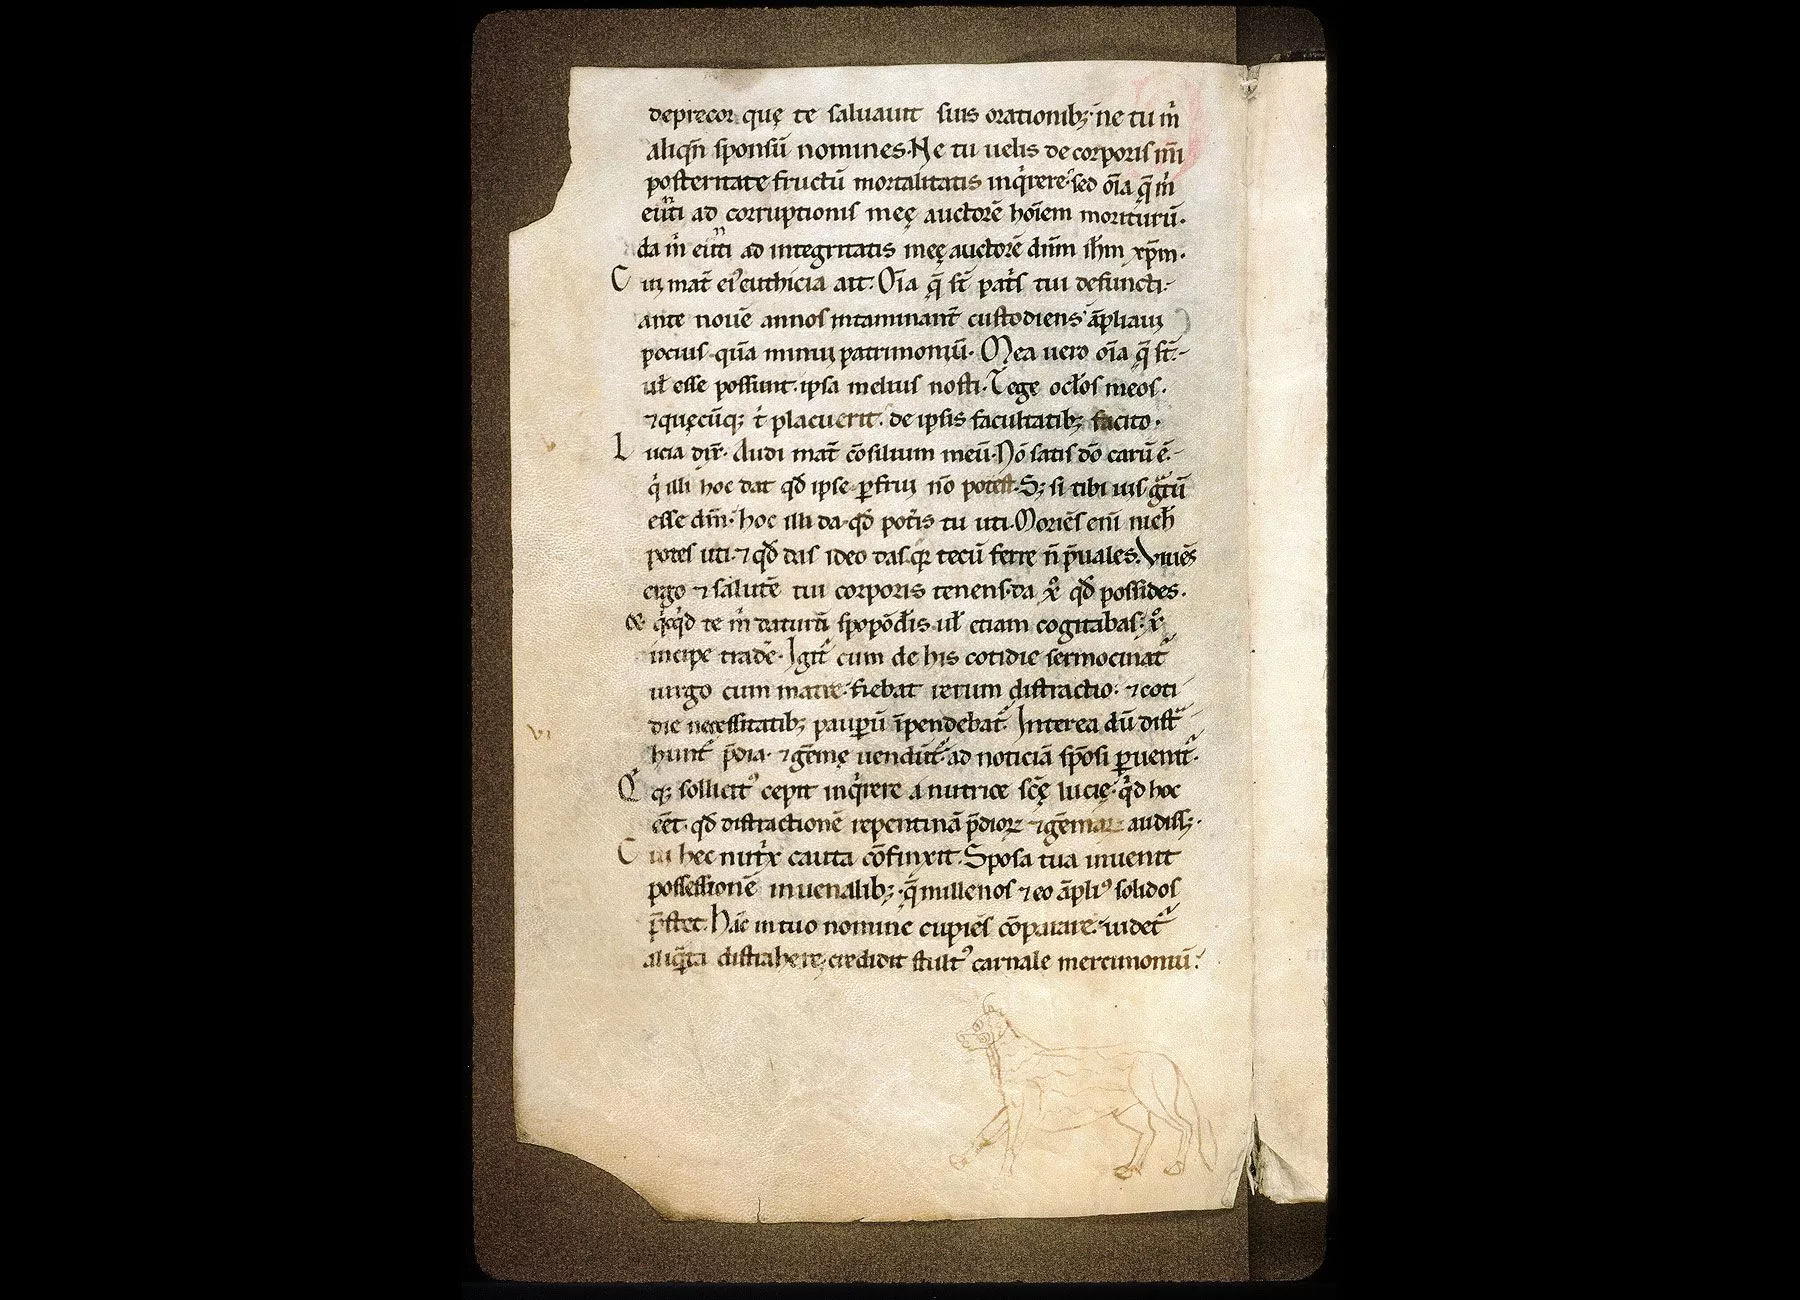 deprecor quę te saluauit suis orationibꝫ ne tu m̊
aliqn̄ sponsū nomines. Ne tu uelis de corporis mī
posteritate fructū mortalitatis inq̊rere. sed oīa q̄ m̊
ad corruptionis meę auctorē hoīem moriturū.
da m̊ ad integritatis meę auctorē dn̄m ih̄m xp̄m.
Cui mat̄ ei᾽ euthicia ait. Oīa q̄ st̄ pat̄s tui defuncti
ante nouē annos intaminant̄ custodiens āpliaui
pocius quā minui patrimoniū. Mea uero oīa q̄ st̄
ul̄ esse possunt. ipsa melius nosti. Tege oc̄los meos.
⁊ quęcūqꝫ t̊ placuerit. de ipsis facultatibꝫ facito.
Lucia dix̄. Audi mat̄ cōsilium meū. Nō satis dō carū ē.
q̊ illi hoc dat qd̄ ipse ꝑfrui nō potest. Sꝫ si tibi uis gr̄tū
esse dn̄m. hoc illi da qd̄ pot̄is tu uti. Moriēs eni nich̄
potes uti. ⁊ qd̄ das ideo das. qꝛ tecū ferre n̄ p̄uales. Viuēs
ergo ⁊ salutē tui corporis tenens. da x̊ qd̄ possides.
& q̊cq̊d te m̊ daturā spopōdis ul̄ etiam cogitabas. x̊
incipe tradē. Igit̄ cum de his cotidie sermocinat̄
uirgo cum matre. fiebat rerum distractio. ⁊ coti
die necessitatibꝫ pauꝑū īpendebat̄. Interea dū dist̄
hunt̄ p̄dia. ⁊ gēmę uendūt̄. ad noticiā spōsi ꝑuenit.
Qi qꝫ sollicit᾽ cepit inq̊rere a nutrice sc̄ę lucię. q̊d hoc
eēt. qd̄ distractionē repentinā p̄dioꝝ ⁊ gēmaꝝ audissꝫ.
Cui hec nut̊x cauta cōfinxit. Sposa tua inuenit
possessionē in uenalibꝫ. q̄ millenos ⁊ eo āpli᾽ solidos
p̄stet. Hāc in tuo nomine cupiēs cōparare. uidet̄
aliq̄ta distrahere. credidit stult᾽ carnale mercimoniū.
vi